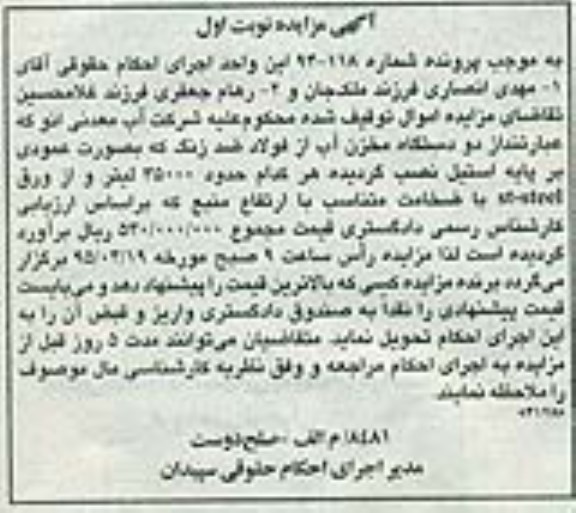 آگهی مزایده نوبت اول
به موجب پرونده شماره ۱۱۸-۹۳ این واحد اجرای احکام حقوقی آقای
۱- مهدی انصاری فرزند ملک‌جان و ۲- رهام جعفری فرزند غلامحسین
تقاضای مزایده اموال توقیف شده محکوم‌علیه شرکت آب معدنی انو که
عبارتنداز دو دستگاه مخزن آب از فولاد ضد زنگ که بصورت عمودی
بر پایه استیل نصب گردیده هر کدام حدود ۳۵۰۰۰ لیتر و از ورق
st-steel با ضخامت متناسب با ارتفاع منبع که براساس ارزیابی
کارشناس رسمی دادگستری قیمت مجموع ۵۳۰/۰۰۰/۰۰۰ ریال برآورد
گردیده است لذا مزایده رأس ساعت ۹ صبح مورخه ۹۵/۰۲/۱۹ برگزار
می‌گردد برنده مزایده کسی که بالاترین قیمت را پیشنهاد دهد و می‌بایست
قیمت پیشنهادی را نقداً به صندوق دادگستری واریز و قبض آن را به
این اجرای احکام تحویل نماید. متقاضیان می‌توانند مدت ۵ روز قبل از
مزایده به اجرای احکام مراجعه و وفق نظریه کارشناسی مال موصوف
را ملاحظه نمایند.
۸۴۸۱/م الف -صلح‌دوست
مدیر اجرای احکام حقوقی سپیدان